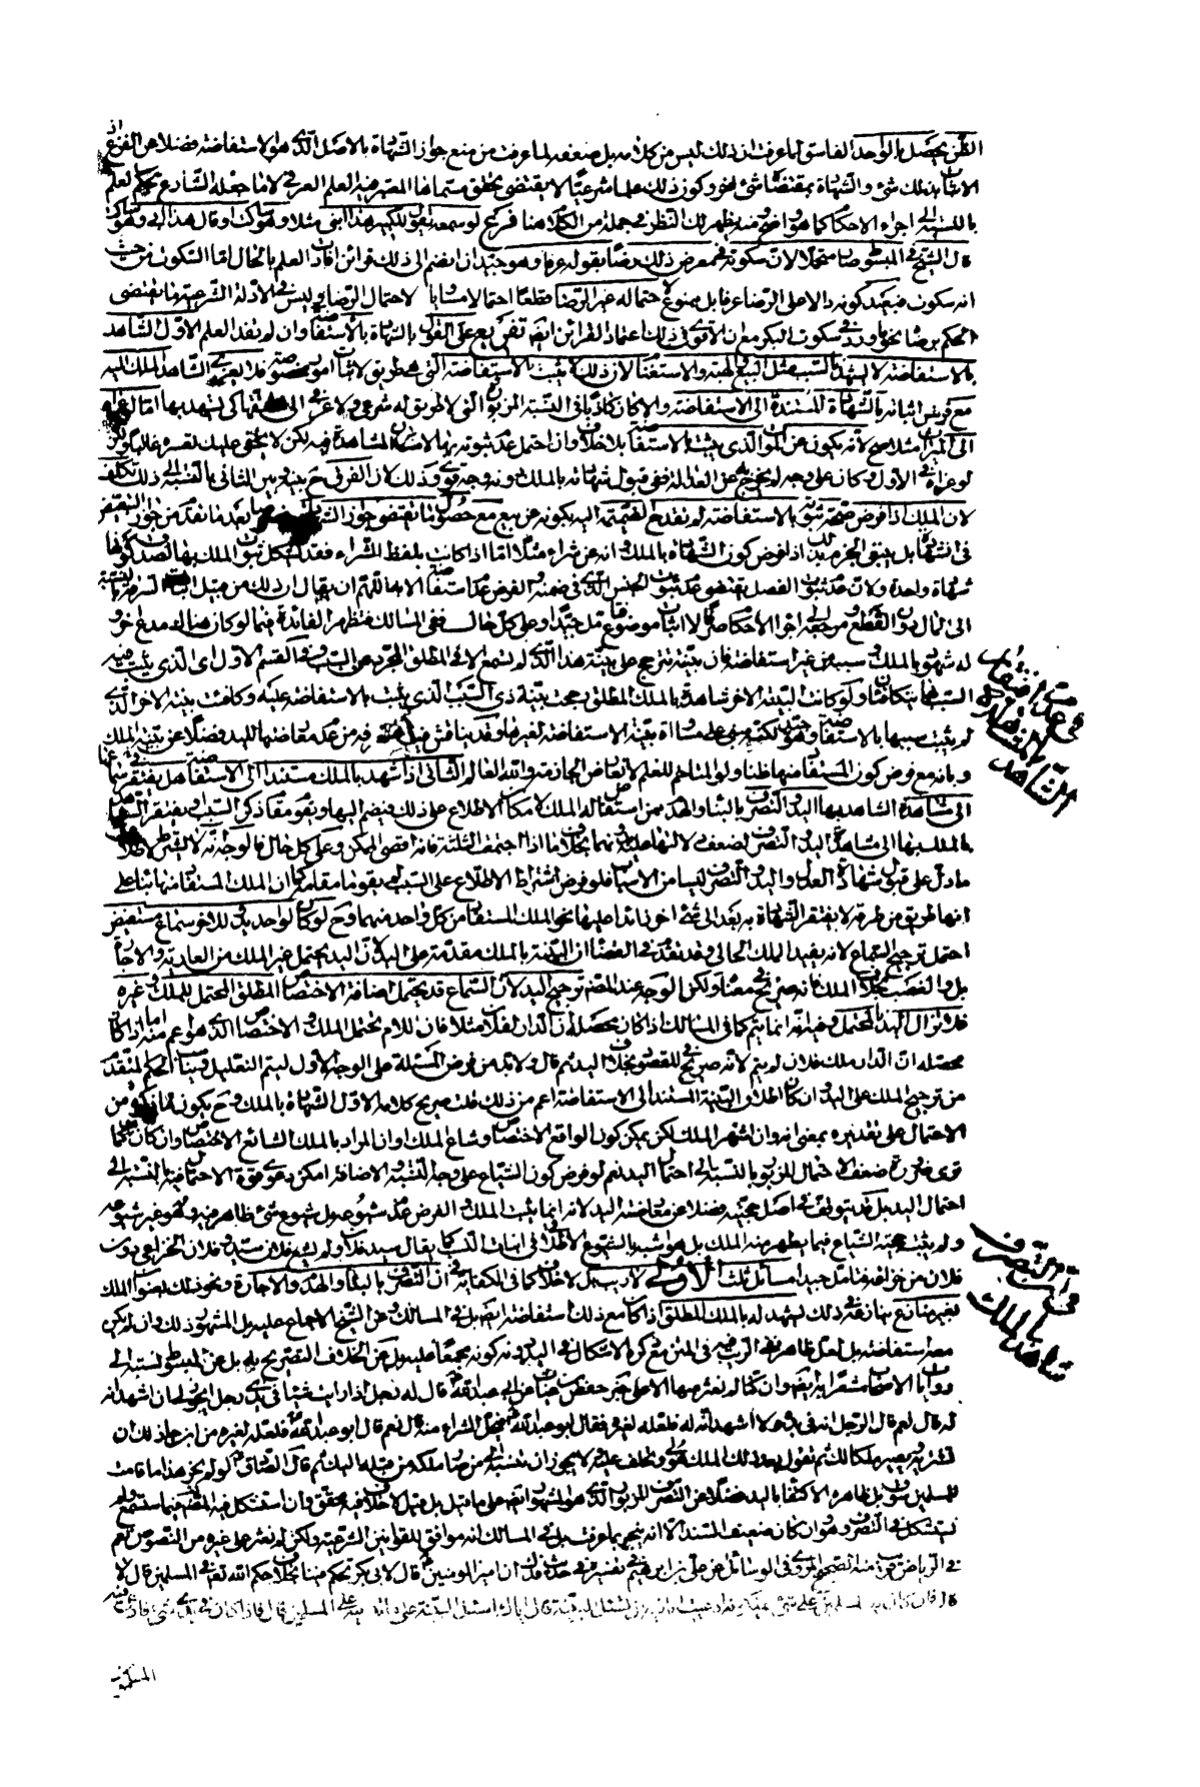 الظن يحصل بالواحد الفاسق لما عرفت ان ذلك ليس من كلامه بل ضعفه لما عرفت من منع جواز الشهادة بالاصل الذي هو الاستفاضة فضلا عن الفرع اذ
الاثبات بذلك شيء والشهادة بمقتضاه شيء اخر وكون ذلك علما شرعيا لا يقتضي تحقق مسماها المعتبر فيه العلم العرفي لا ما جعله الشارع بحكم العلم
بالنسبة الى اجراء الاحكام كما هو واضح ومنه يظهر لك النظر في جملة من الكلام هنا فرع لو سمعه يقول للكبير هذا ابني مثلا وهو ساكت او قال هذا ابي وهو ساكت
قال الشيخ في المبسوط صار متحملا لان سكوته في معرض ذلك رضا بقوله عرفا وهو جيد ان انضم الى ذلك قرائن افادت العلم بالحال اما السكون من حيث
انه سكون فبعيد كونه دالا على الرضا عرفا بل ممنوع لاحتماله غير الرضا قطعا احتمالا مساويا لاحتمال الرضا وليس في الادلة الشرعية ما يقتضي
الحكم برضائه نحو ما ورد في سكوت البكر مع ان الاقوى في ذلك اعتماد القرائن ايضا تفريع على القول بالشهادة بالاستفاضة وان لم نفد العلم الاول الشاهد
بالاستفاضة لا يشهد بالسبب مثل البيع والهبة والاستغنام لان ذلك لا يثبت بالاستفاضة التي هي طريق لاثبات امور مخصوصة فلا يعزي الشاهد الملك اليه
مع فرض اثباته بالشهادة المستندة الى الاستفاضة والا كان كاذبا في النسبة المزبورة التي لا طريق له شرعي ولا عرفي الى كي يشهد بها اما لو عزاه
الى الميراث مثلا صح لانه يكون عن الموت الذي يثبت بالاستفاضة بلا خلاف وان احتمل عدم ثبوته بها لامكان المشاهدة فيه لكن لا يخفى عليك لقسره نعم
لو عزاه في الاول وكان على وجه لم يخرج به عن العدالة ففي قبول شهادته بالملك دونه وجه قوي وذلك لان الفرق ح بينه وبين الثاني بالنسبة الى ذلك تكلف
لان الملك اذا فرض صحة ثبوته بالاستفاضة لم يقدح الضميمة اليه بكونه عن بيع مع حصول ما يقتضي جواز الشهادة
في الشهادة بل ينبغي الجزم بذلك اذا فرض كون الشهادة بالملك وانه عن شراء مثلا اما اذا كانت بلفظ الشراء فقد اشكل ثبوت الملك بها لصدق كونها
شهادة واحدة ولان عدم ثبوت الفصل يقتضي عدم ثبوت الجنس الذي في ضمنه والفرض عدم استفاضة الا به اللهم ان يقال ان ذلك من قبيل
الى المال دون القطع ومرجعه اجراء الاحكام صرفا لا اثبات موضوعها تأمل جيدا وعلى كل حال ففي المسالك فتظهر الفائدة فيما لو كان هناك مدع اخر و
له شهود بالملك وسببه من غير استفاضة فان بينته تترجح على بينة هذا الذي لم تسمع الا في المطلق المجرد عن السبب وفي القسم الاول اي الذي يثبت فيه
السبب بها يتكافئان ولو كانت البينة الاخرى شاهدة بالملك المطلق رجحت بينة ذي السبب الذي يثبت بالاستفاضة عليه وكافئت بينة الاخر الذي
لم يثبت سببها بالاستفاضة وهو جيد لكنه مبني على مساواة بينة الاستفاضة لغيرها وقد يناقش فيه فيه من عدم معارضتها لليد فضلا عن بينة الملك
وبانه مع فرض كون المستفاد منها ظنا ولو المتاخم للعلم لا تعارض الجازمة والله العالم الثاني اذا شهد بالملك مستندا الى الاستفاضة هل يفتقر في شهادته
الى مشاهدة الشاهد بها اليد والتصرف بالبناء والهدم ممن استفاض له الملك لامكان الاطلاع على ذلك فيضم اليها ويقوم مقام ذكر السبب او يفتقر الشهادة
بالملك بها الى مشاهدة اليد او التصرف لضعف دلالتها عليه دونهما بخلاف ما اذا اجتمعت الثلثة فانه اقصى الممكن وعلى كل حال فالوجه انه لا يشترط لاطلاق
ما دل على قبول شهادة العدل واليد والتصرف ليسا من الاسباب فلو فرض اشتراط الاطلاع على السبب لم يقوما مقامه كما ان الملك المستفاد منها بناء على
انها طريق من طرقه لا يفتقر الشهادة به بعد الى شيء اخر زائد عليها نحو الملك المستفاد من كل واحد منهما وح لو كان لواحد يد وللاخر سماع مستفيض
احتمل ترجيح السماع لانه يفيد الملك الحالي وقد تقدم في القضاء ان البينة بالملك مقدمة على اليد لان اليد يحتمل غير الملك من العارية والاجارة
بل والغصب بخلاف الملك فانه صريح في معناه ولكن الوجه عند المصنف ترجيح اليد لان السماع قد يحتمل اضافة الاختصاص المطلق المحتمل للملك وغيره
فلا تزال اليد بالمحتمل وفيه انه انما يتم كما في المسالك اذا كان محصله ان الدار لفلان مثلا فان اللام يحتمل الملك والاختصاص الذي هو اعم منه اما اذا كان
محصله ان الدار ملك فلان لم يتم لانه صريح في المقصود بخلاف اليد ثم قال ولا بد من فرض المسئلة على الوجه الاول ليتم التعليل ويناسب الحكم المتقدم
من ترجيح الملك على اليد وان كان اطلاق البينة المستندة الى الاستفاضة اعم من ذلك قلت صريح كلامه الاول الشهادة بالملك وح يكون ما ذكره من
الاحتمال على تقديره بمعنى انه وان اشتهر الملك لكن يمكن كون الواقع الاختصاص وشاع الملك او ان المراد بالملك الشائع الاختصاص وان كان كما
ترى ضرورة ضعف الاحتمال المزبور بالنسبة الى احتمال اليد نعم لو فرض كون السماع على وجه النسبة والاضافة امكن دعوى قوة الاحتمال فيه بالنسبة الى
احتمال اليد بل قد يتوقف في اصل حجيته فضلا عن معارضته اليد لانه انما يثبت الملك والفرض عدم شيوعه بل شيوع شيء ظاهر فيه وهو غير شيوعه
ولم يثبت حجية الشياع فيما يظهر منه الملك بل هو اشبه بالشيوع الاطلاقي في اثبات النسب كما يقال سيد فلان ولم يشع فلان سيد وفلان الخزاعي دون
فلان من خزاعة فتامل جيدا مسائل ثلث الاولى لا ريب بل لا خلاف كما في الكفاية في ان التصرف بالبناء والهدم والاجارة ونحو ذلك بعنوان الملك
بغير منازع بمنازعة وذلك يشهد له بالملك المطلق اذا كان مع ذلك استفاضة ايضا بل في المسالك وعن الشيخ الاجماع عليه بل المشهور ذلك وان لم يكن
معه استفاضة بل لعل ظاهر نفي الريب فيه في المتن مع ذكره الاشكال في اليد دونه كونه مجمعا عليه بل عن الخلاف التصريح به بل عن المبسوط نسبته الى
روايات الاصحاب مشعرا به ايضا وان كنا لم نعثر منها الا على خبر حفص بن غياث عن ابي عبد الله قال له رجل اذا رايت شيئا في يدي رجل ايجوز لي ان اشهد انه
له قال نعم قال الرجل انه في يده ولا اشهد انه له فلعله لغيره فقال ابو عبد الله فيحل الشراء منه قال نعم قال ابو عبد الله فلعله لغيره من اين جاز لك ان
تشتريه ويصير ملكا لك ثم تقول بعد ذلك الملك هو لي وتحلف عليه ولا يجوز ان تنسبه الى من صار ملكه من قبله اليك ثم قال الصادق لو لم يجز هذا ما قامت
للمسلمين سوق بل ظاهره الاكتفاء باليد فضلا عن التصرف المزبور الذي هو المشهور ايضا على ما قيل بل قيل لا خلاف فيه محقق وان استشكل فيه المصنف فيما ستسمع ولم
يستشكل في التصرف وهو وان كان ضعيف السند الا انه منجبر بما عرفت بل في المسالك انه موافق للقوانين الشرعية ولكن لم نعثر على غيره من النصوص نعم
في الرياض قريب منه الصحيح المروي في الوسائل عن علي بن ابراهيم في تفسيره في حديث فدك ان امير المومنين قال لابي بكر تحكم فينا بخلاف حكم الله تعالى في المسلمين قال لا
قال فان كان في يد المسلمين شيء يملكونه ادعيت انا فيه من تسئل البينة قال اياك اسئل البينة على ما تدعيه على المسلمين قال فاذا كان في يدي شيء فادعى فيه
المسلمون
في عدم افتقار الشاهد بالاستفاضة الى
في ان التصرف شاهد بالملك